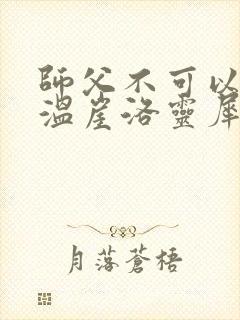 師父不可以
溫崖洛靈犀
月落蒼梧